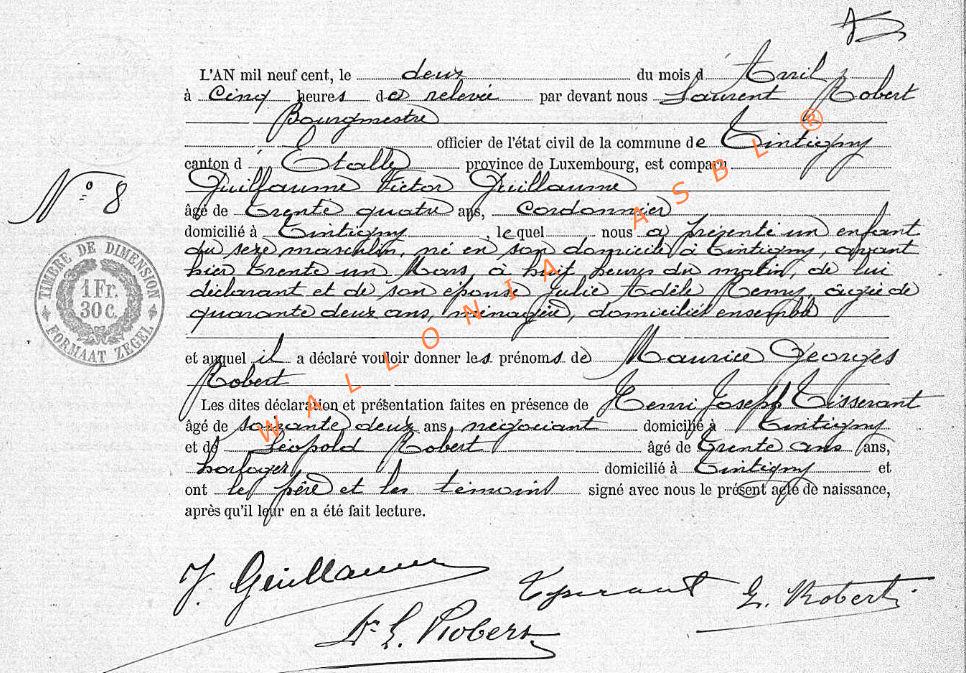 L'AN mil neuf cent, le deux du mois d'Avril
à Cinq heures de relevée par devant nous Laurent Robert
Bourgmestre
officier de l'état civil de la commune de Tintigny
canton d'Etalle province de Luxembourg, est comparu
Guillaume Victor Guillaume
N° 8
âgé de trente quatre ans, cordonnier
domicilié à Tintigny, lequel nous a présenté un enfant
du sexe masculin, né en son domicile à Tintigny, avant
hier trente un Mars, à huit heures du matin, de lui
déclarant et de son épouse Julie Adèle Remy, âgée de
quarante deux ans, ménagère, domiciliés ensemble
TIMBRE DE DIMENSION
1 Fr.
30 c.
FORMAAT ZEGEL
et auquel il a déclaré vouloir donner les prénoms de Maurice Georges
Robert
Les dites déclaration et présentation faites en présence de Henri Joseph Tisserant
âgé de soixante deux ans négociant domicilié à Tintigny
et de Léopold Robert âgé de trente ans ans,
horloger domicilié à Tintigny et
ont le père et les témoins signé avec nous le présent acte de naissance,
après qu'il leur en a été fait lecture.
WALLONIA ASBL ®
Guillaume
L. Robert